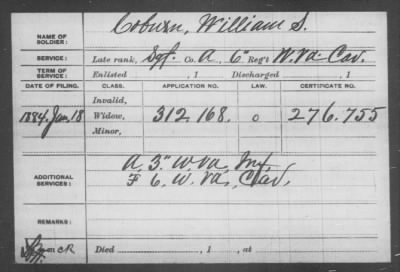 NAME OF SOLDIER: Coburn, William S.
SERVICE: Late rank, Sgt. Co. A, 6" Reg't W. Va. Cav.
TERM OF SERVICE: Enlisted , 1 Discharged , 1
DATE OF FILING. CLASS. APPLICATION NO. LAW. CERTIFICATE NO.
Invalid,
1884, Jan. 18 Widow, 312 168. o 276.755
Minor,
ADDITIONAL SERVICES: A. 3" W. Va. Inf.
F 6. W. Va. Cav.
REMARKS:
Died , 1 , at